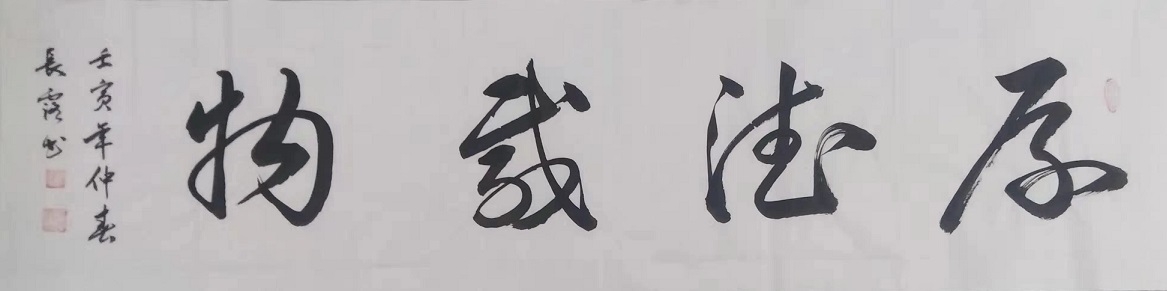 厚德载物
壬寅年仲春
長霞书